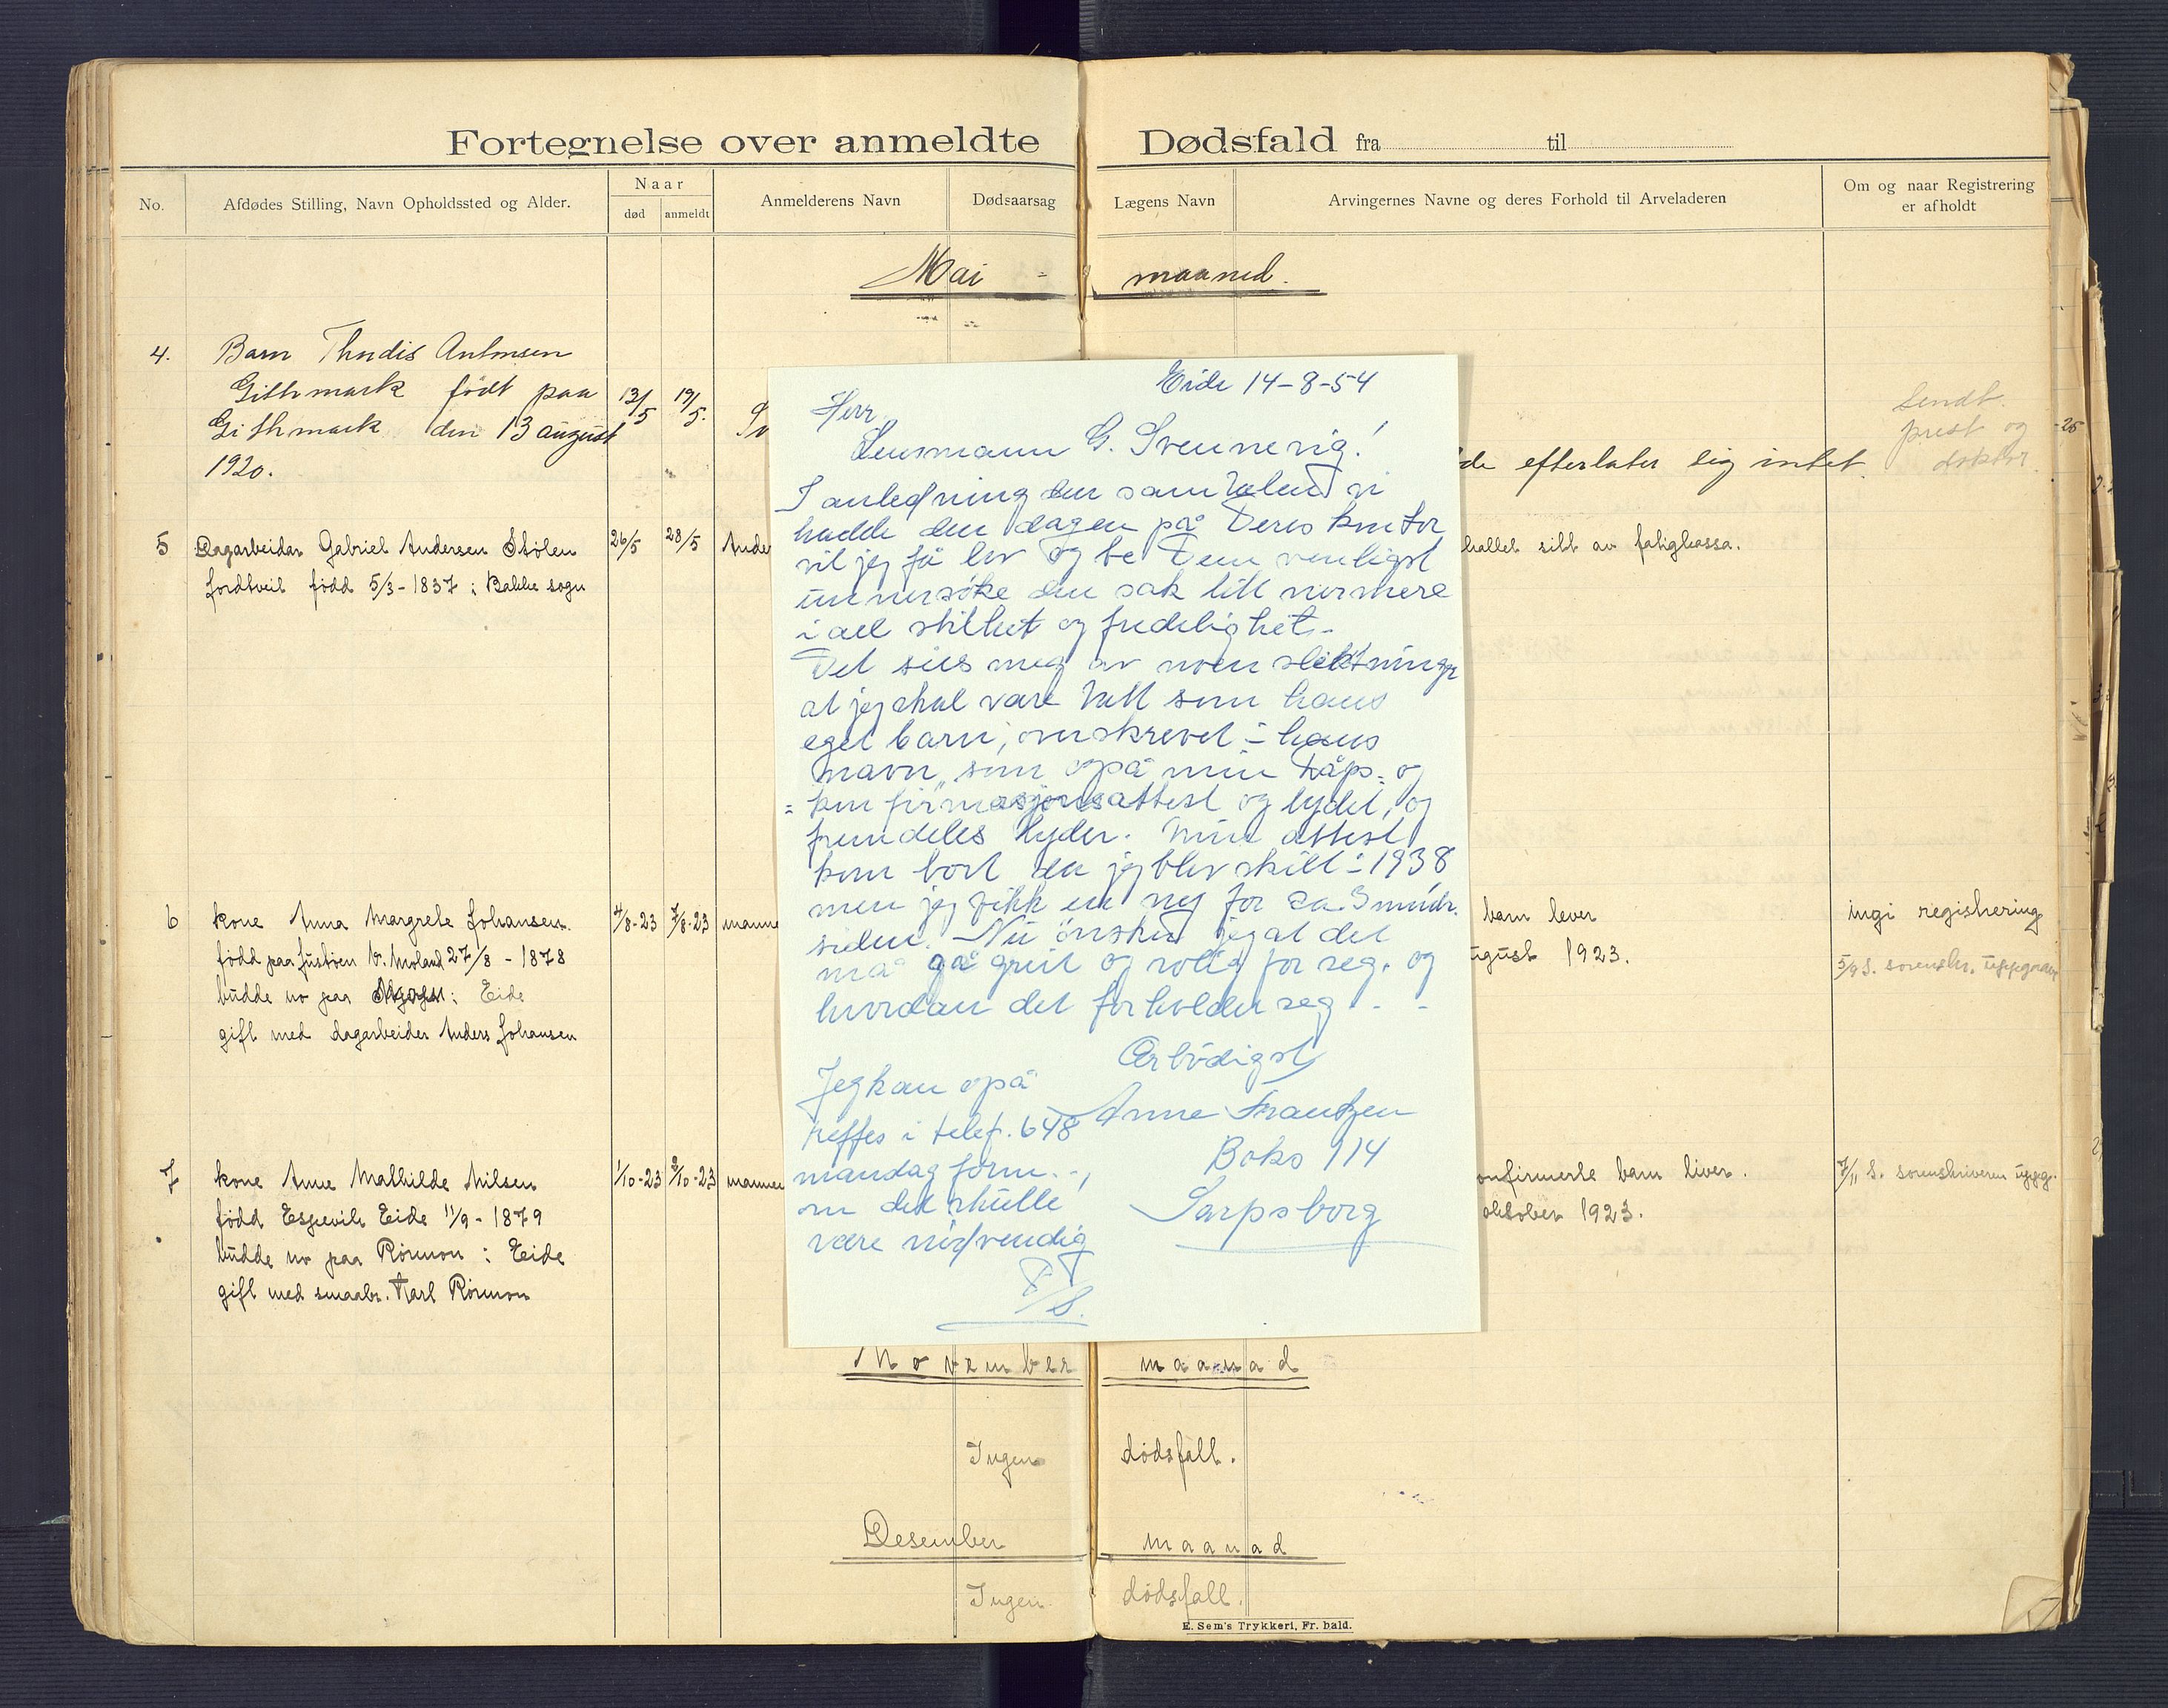 Fortegnelse over anmeldte Dødsfald fra til
No.
Afdødes Stilling, Navn Opholdssted og Alder.
Naar
død
anmeldt
Anmelderens Navn
Dødsaarsag
Lægens Navn
Arvingernes Navne og deres Forhold til Arveladeren
Om og naar Registrering
er afholdt
Mai - maaned.
4. Barn Thodis Antonsen
Githmark født paa 13/5 19/5.
Githmark den 13 august
1920.
de efterlater sig intet
Sendt
prest og
doktor.
5 Dagarbeidar Gabriel Andersen Stølen 26/5 28/5 Ande
fordtveit fødd 5/3-1837 i Bakke sogn
hallet sitt av fatigkassa.
Eide 14-8-54
Herr
Lensmann G. Svennevig!
I anledning den samtalen vi
hadde den dagen på Deres kontor
vil jeg få lov og be Dem venligst
unnersøke den sak litt nermere
i all stillhet og fredelighet.-
Det sies meg av noen slektninge
at jeg skal være tatt som hans
eget barn, overskrevet i hans
navn, som også min dåps- og
konfirmasjonsattest og lydet, og
fremdeles lyder. Min attest
kom bort da jeg blev skilt i 1938
men jeg fikk en ny for ca. 3 mndr.
siden. Nu ønsker jeg at det
må gå greit og rolig for seg. og
hvordan det forholder seg . - -
Ærbødigst
Anne Frantzen
Boks 114
Sarpsborg
Jeg kan også
treffes i telef. 648
mandag form. -,
om det skulle
være nødvendig
D/S.
6 kone Anna Margrete Johansen. 4/8-23 7/8-23 manne
født paa Justøen V. Moland 27/8 - 1878
budde no paa i Eide
gift med dagarbeider Anders Johansen
barn lever
ugust 1923.
ingi registrering
5/9 S. sorenskr. uppgave
7 kone Anne Mathilde Nilsen 1/10-23 2/10-23 mannen
født Espevik Eide 11/9 - 1879
budde no paa Rønnon i Eide
gift med smaabr. Karl Rønnon
onfirmerte barn liver.
oktober 1923.
7/11 S. sorenskriveren uppg.
November maanad
Ingen dødsfall.
Desember maanad
Ingen dødsfall.
E. Sem's Trykkeri, Fr. hald.